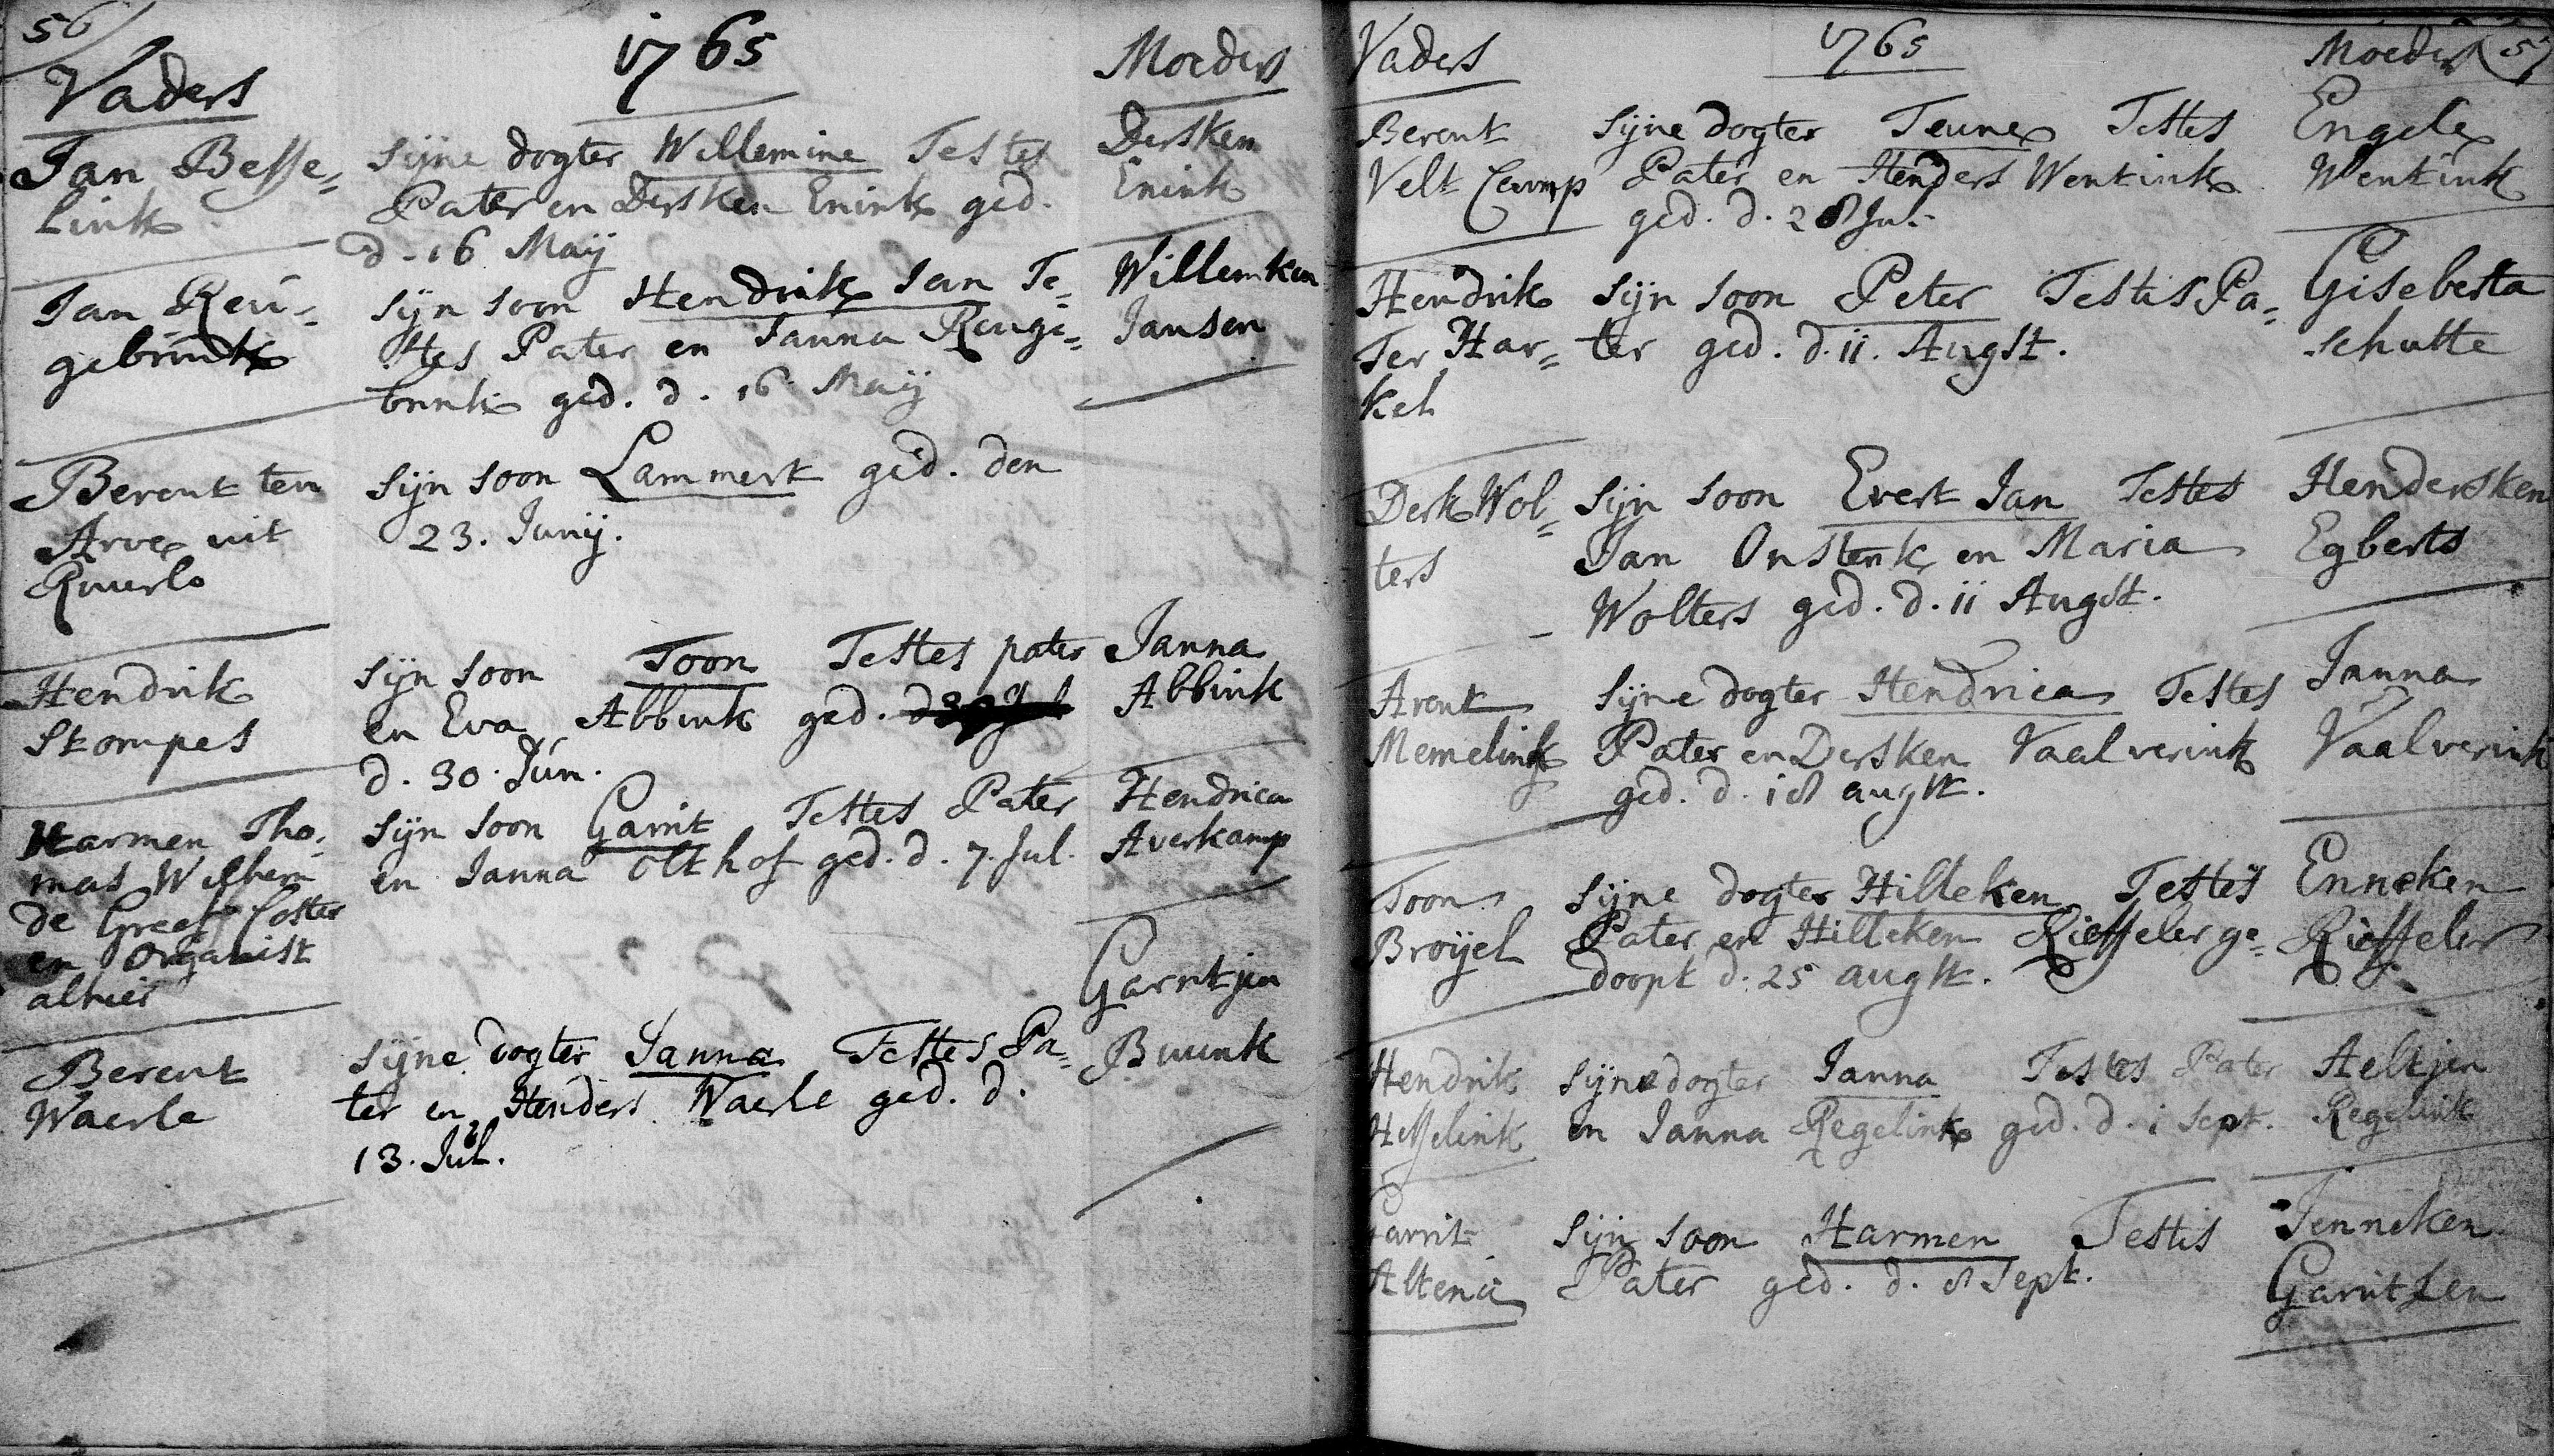 56
1765
Vaders
Moeders
Jan Besse=
link
sijne dogter Willemine Testes
Pater en Dersken Enink ged.
d. 16 Maij
Dersken
Enink
Jan Reu=
gebrink
sijn soon Hendrik Jan Te=
stes Pater en Janna Reuge=
brink ged. d. 16 Maij
Willemken
Jansen
Berent ten
Arve uit
Ruurlo
sijn soon Lammert ged. den
23. Junij.
Hendrik
Stompes
sijn soon Toon Testes pater
en Eva Abbink ged.
d. 30. Jun.
Janna
Abbink
Harmen Tho=
mas Wilhem
de Greef Coster
en Organist
alhier
sijn soon Garrit Testes Pater
en Janna Olthof ged. d. 7. Jul.
Hendrica
Averkamp
Berent
Waerle
sijne dogter Janna Testes Pa=
ter en Henders Waerle ged. d.
13. Jul.
Garritjen
Buunk
57
Vaders
1765
Moeders
Berent
Velt Camp
sijne dogter Teune Testes
Pater en Henders Wentink
ged. d. 28 Jul.
Engele
Wentink
Hendrik
Ter Har=
kel
sijn soon Peter Testis Pa=
ter ged. d. 11. Augst.
Giseberta
schutte
Derk Wol=
ters
sijn soon Evert Jan Testes
Jan Onstenk en Maria
Wolters ged. d. 11 Augst.
Hendersken
Egberts
Arent
Memelink
sijne dogter Hendrica Testes
Pater en Dersken Vaalverink
ged. d. 18 augst.
Janna
Vaalverink
Toon
Broijel
sijne dogter Hilleken Testes
Pater en Hilleken Rieffeler ge=
doopt d. 25 augst.
Enneken
Rieffeler
Hendrik
Hesselink
sijne dogter Janna Testes Pater
en Janna Regelink ged. d. 1 Sept.
Aeltjen
Regelink
Garrit
Altena
sijn soon Harmen Testis
Pater ged. d. 8 Sept.
Jenneken
Garritsen